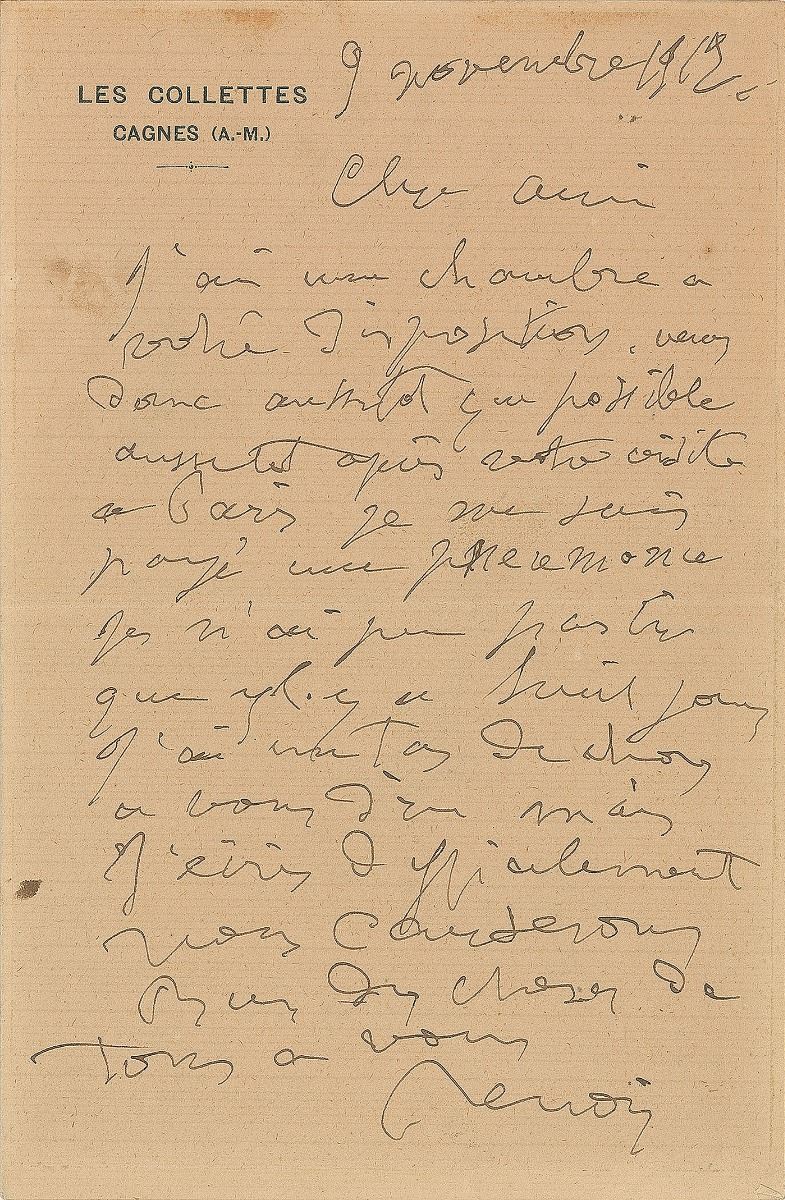 9 novembre 1912.
LES COLLETTES
CAGNES (A.-M.)
Cher ami
J'ai une chambre a
votre disposition. venez
donc aussitot que possible
aussitot après votre visite
a Paris je me suis
payé une pneumonie
je n'ai pu partir
que il y a huit jours
J'ai un tas de choses
a vous dire mais
J'écris difficilement
nous causerons
bien des choses de
Tous a vous
Renoir